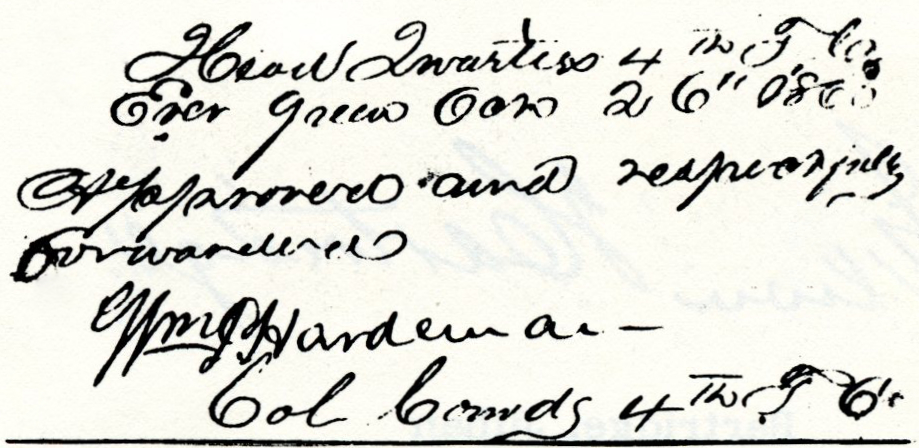 Head Quarters 4th T C
Ever Green
Approved and respectfully
forwarded
Wm P Hardeman
Col Comdg 4th T C